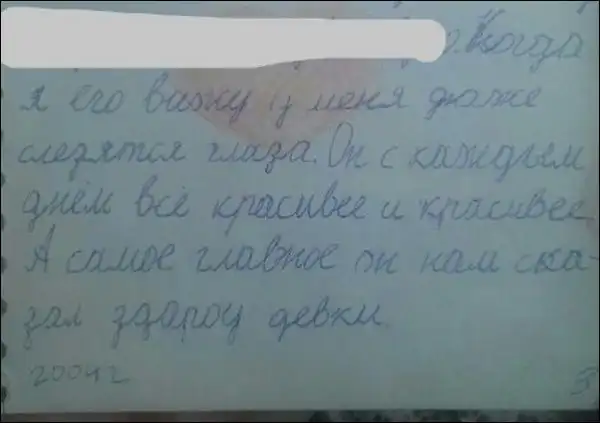 Когда
я его вижу у меня даже
слезятся глаза. Он с каждым
днём всё красивее и красивее
А самое главное он нам ска-
зал здароу девки.
2004 г